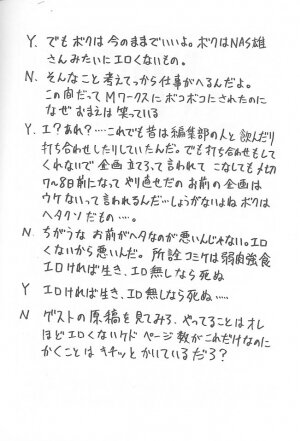 Y. でもボクは今のままでいいよ。ボクはNAS雄
さんみたいにエロくないもの。
N. そんなこと考えてっから仕事がへるんだよ。
この前だってMワークスにボコボコにされたのに
なぜおまえは笑っている
Y. エ?あれ?‥‥これでも昔は編集部の人と飲んだり
打ち合わせしたりしていたんだ。でも打ち合わせもして
くれないで企画立てろって言われて こなしても〆切
7~8日前になって やり過ぎだの お前の企画は
ウケないって言われるんだ…しょうがないよね ボクは
ヘタクソだもの‥‥。
N. ちがうな お前がヘタなのが悪いんじゃない。エロ
くないから悪いんだ。 所詮コミケは弱肉強食
エロければ生き、エロ無しなら死ぬ
Y エロければ生き、エロ無しなら死ぬ‥‥
N ゲストの原稿を見てみろ、やってることはオレ
ほどエロくないケド ページ数がこれだけなのに
かくことは キチッと かいているだろ?